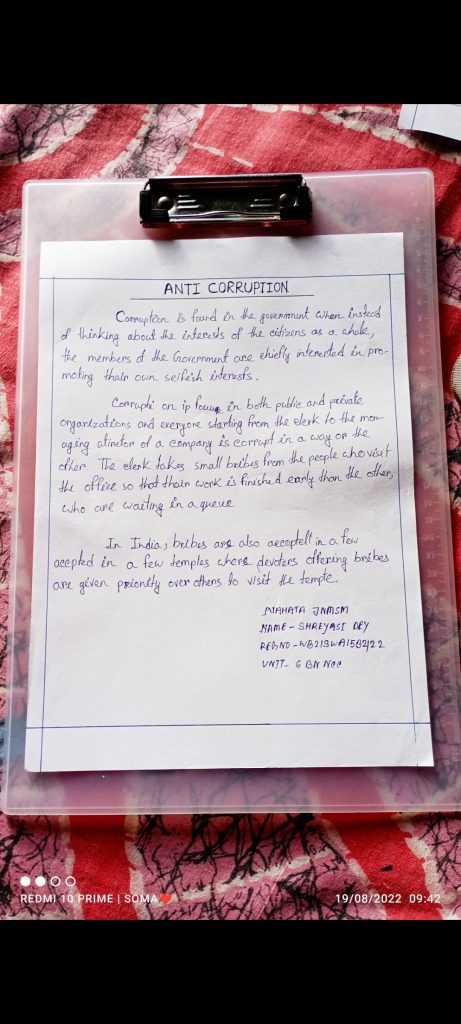 ANTI CORRUPTION
Corruption is found in the government when instead
of thinking about the interests of the citizens as a whole,
the members of the Government are chiefly interested in pro-
moting their own selfish interests.
Corrupti on ip in both public and private
organizations and everyone starting from the clerk to the man-
aging of a company is corrupt in a way or the
other. The clerk takes small bribes from the people who visit
the office so that their work is finished early than the other,
who are waiting in a queue
In India, bribes are also in a few
acepted in a few temples where devotees offering bribes
are given priority over others to visit the temple.
NAHATA JNMSM
NAME - SHREYASI DEY
REGNO - WB21SWA1582122
UNIT - 6 BN NCC
REDMI 10 PRIME | SOMA❤
19/08/2022 09:42